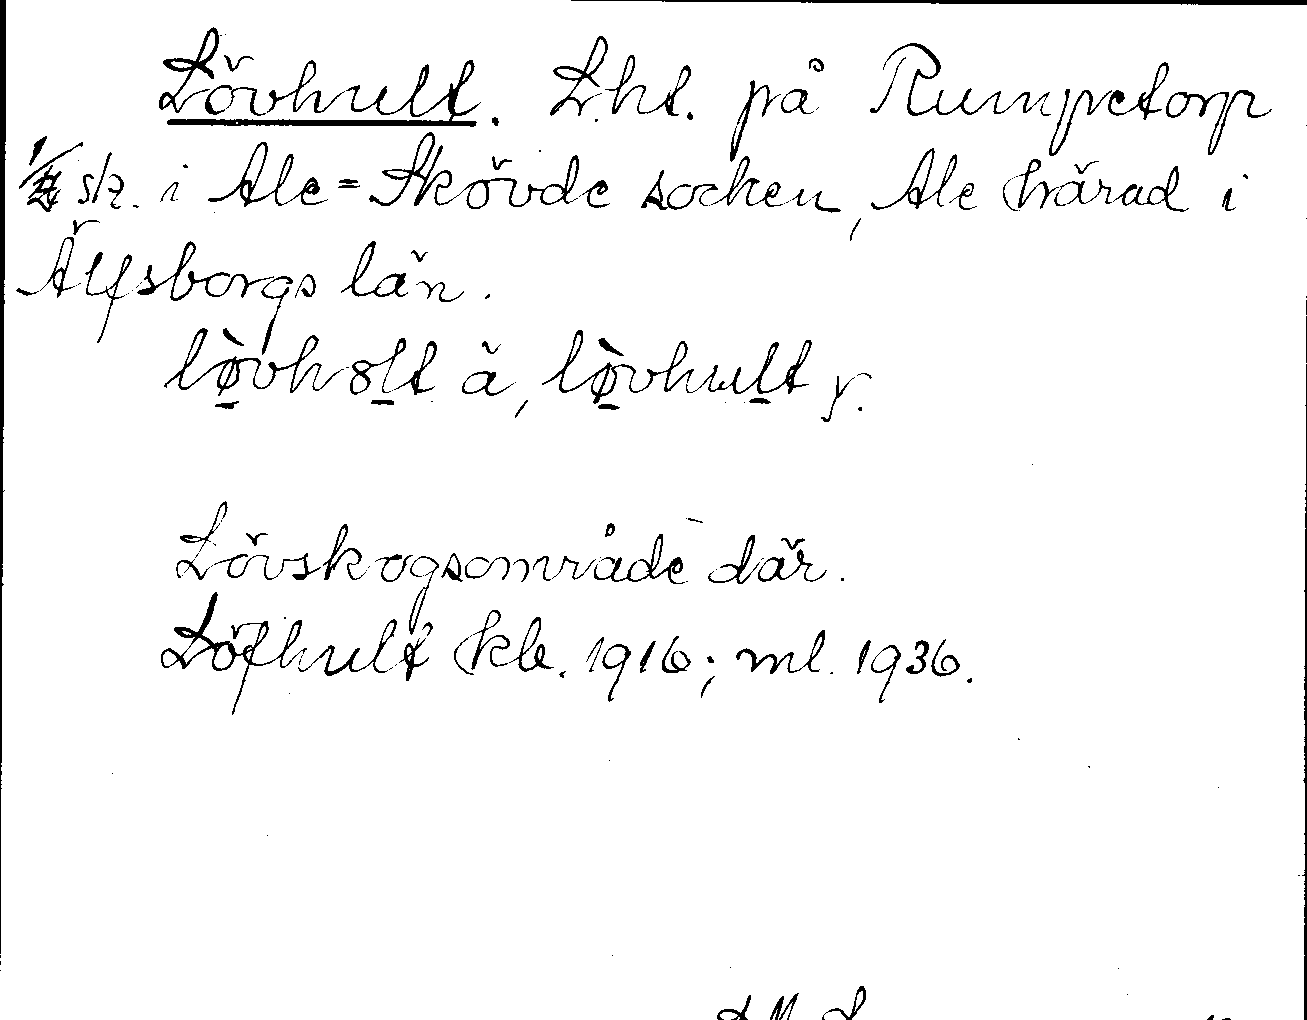 Lövhult. Lht. på Rumpetorp
sk. i Ale-Skövde socken, Ale härad i
Älfsborgs län.
lø̱̀vhol̠t ä, lø̱̀vhul̠t y.
Lövskogsområde där.
Löfhult Kb. 1916; ml. 1936.